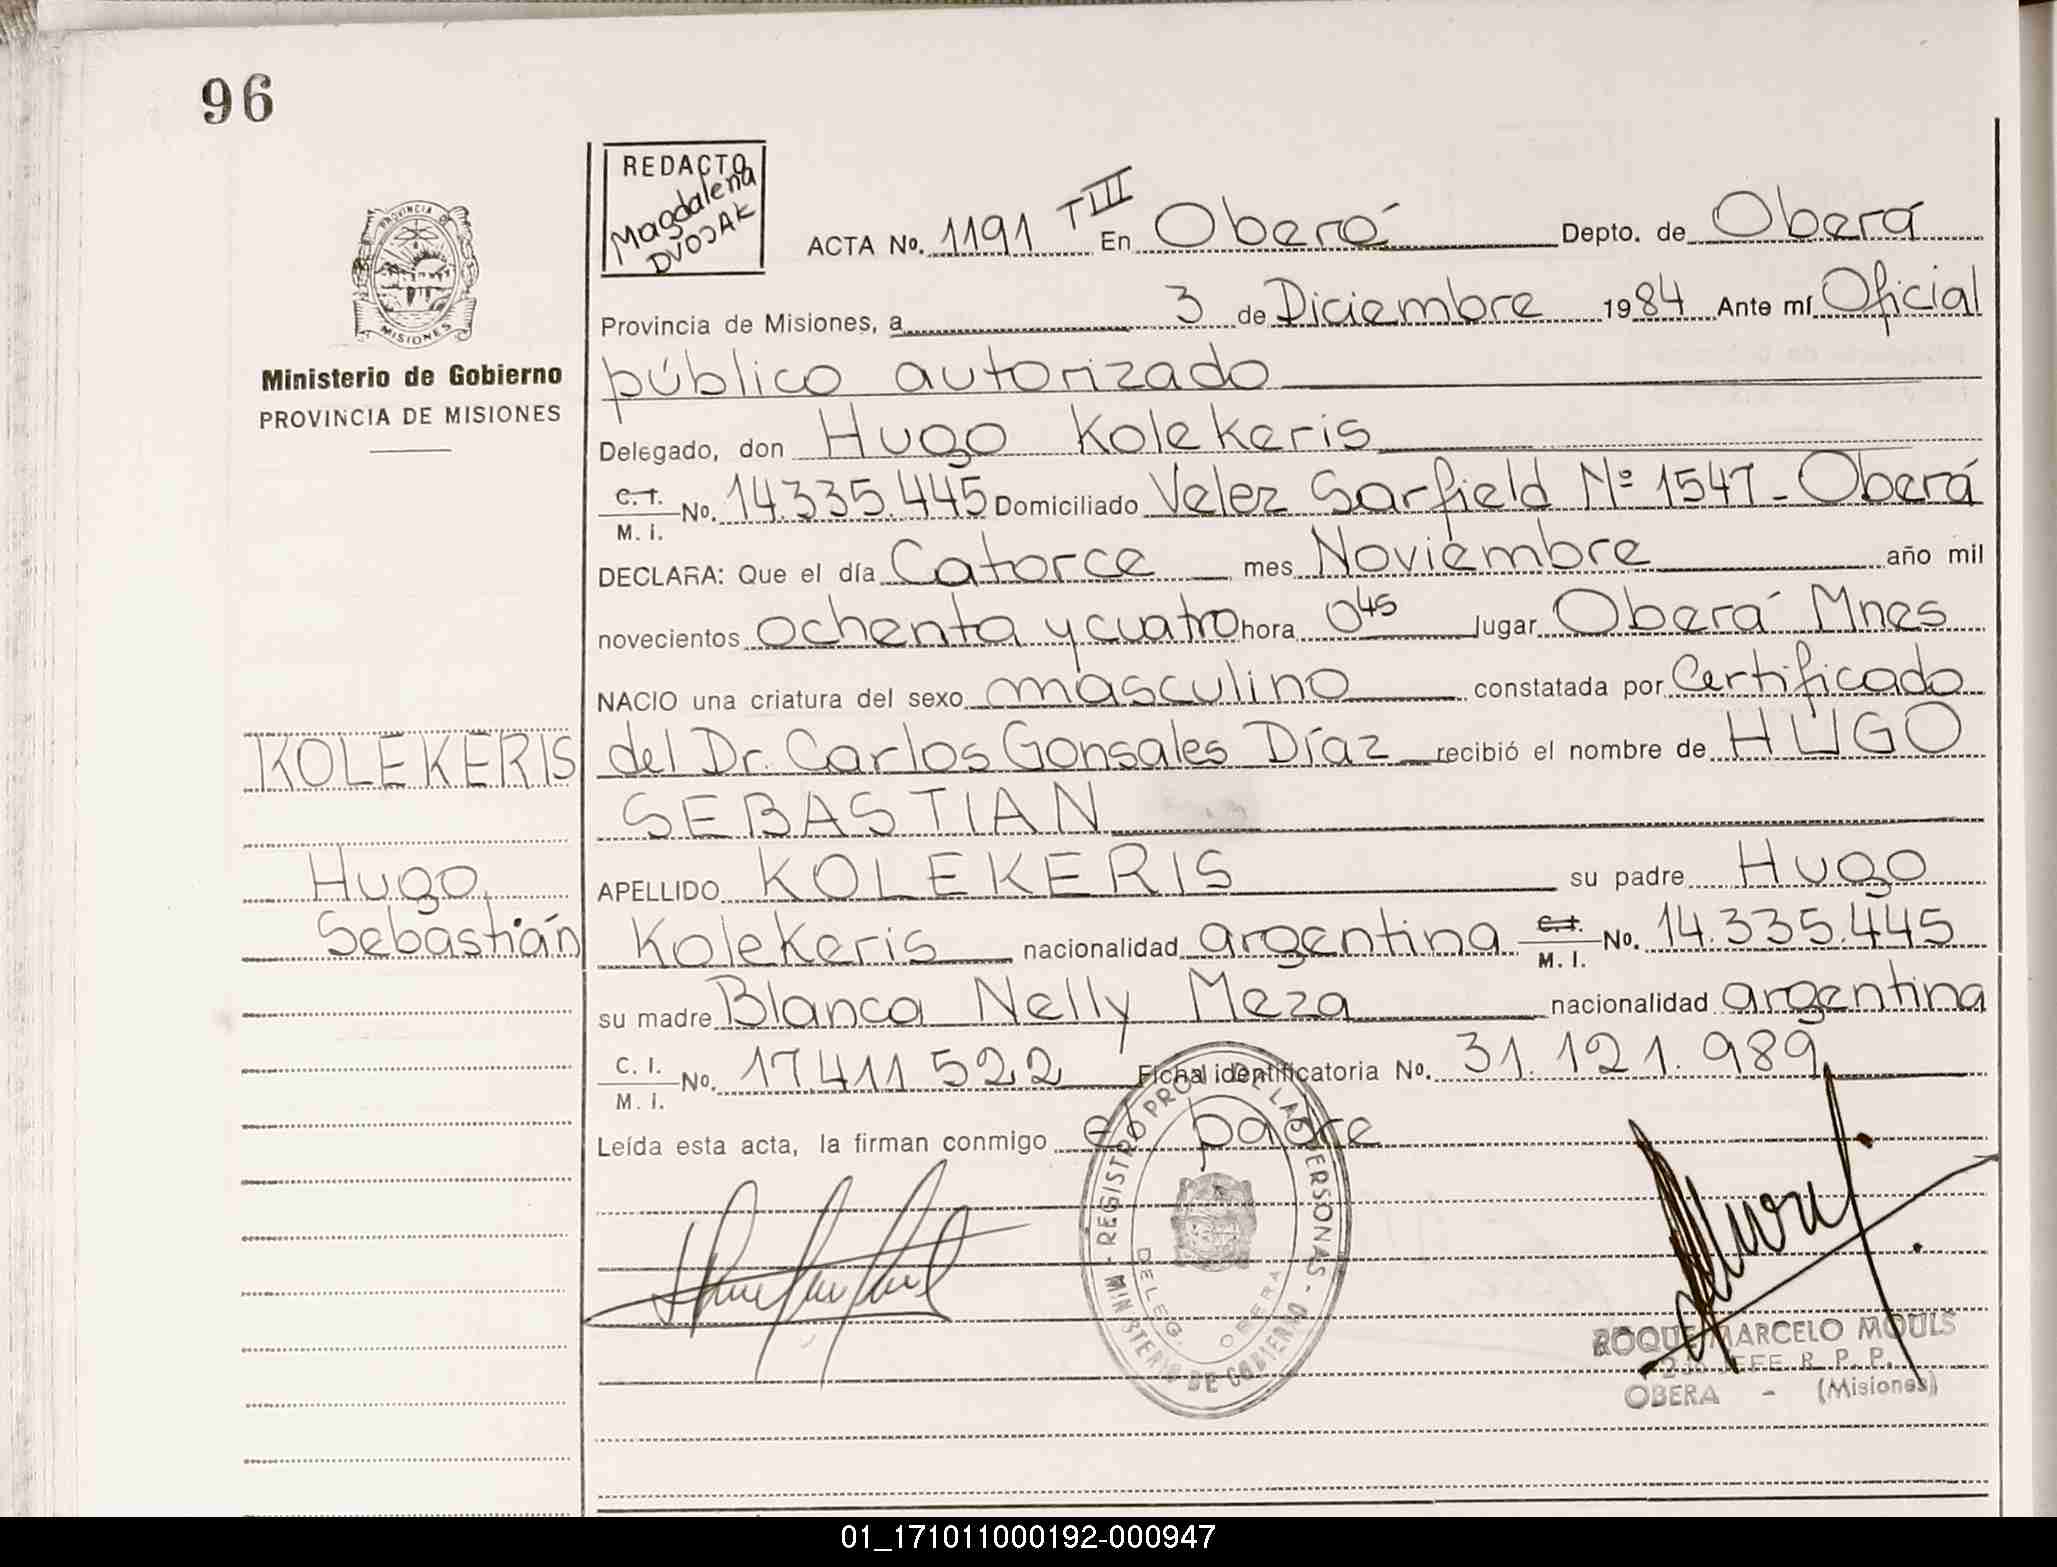 96
REDACTO
Magdalena
DVOJAK
ACTA No. 1191 TIII En Oberá Depto. de Oberá
PROVINCIA DE MISIONES
Provincia de Misiones, a 3 de Diciembre 1984 Ante mí Oficial
Ministerio de Gobierno
PROVINCIA DE MISIONES
público autorizado
Delegado, don Hugo Kolekeris
C. I. M. I. No. 14.335.445 Domiciliado Velez Sarfield Nº 1547 - Oberá
DECLARA: Que el día Catorce mes Noviembre año mil
novecientos ochenta y cuatro hora 0 45 lugar Oberá Mnes
NACIO una criatura del sexo masculino constatada por Certificado
KOLEKERIS
del Dr. Carlos Gonsales Díaz recibió el nombre de HUGO
SEBASTIAN
Hugo
Sebastián
APELLIDO KOLEKERIS su padre Hugo
Kolekeris nacionalidad argentina C. I. M. I. No. 14.335.445
su madre Blanca Nelly Meza nacionalidad argentina
C. I. M. I. No. 17.411 522 Ficha identificatoria No. 31.121.989
Leída esta acta, la firman conmigo el padre
REGISTRO PROV. DE LAS PERSONAS - MINISTERIO DE GOBIERNO -
DELEG. OBERA
ROQUE MARCELO MOULS
2do JEFE R. P. P.
OBERA - (Misiones)
01_171011000192-000947